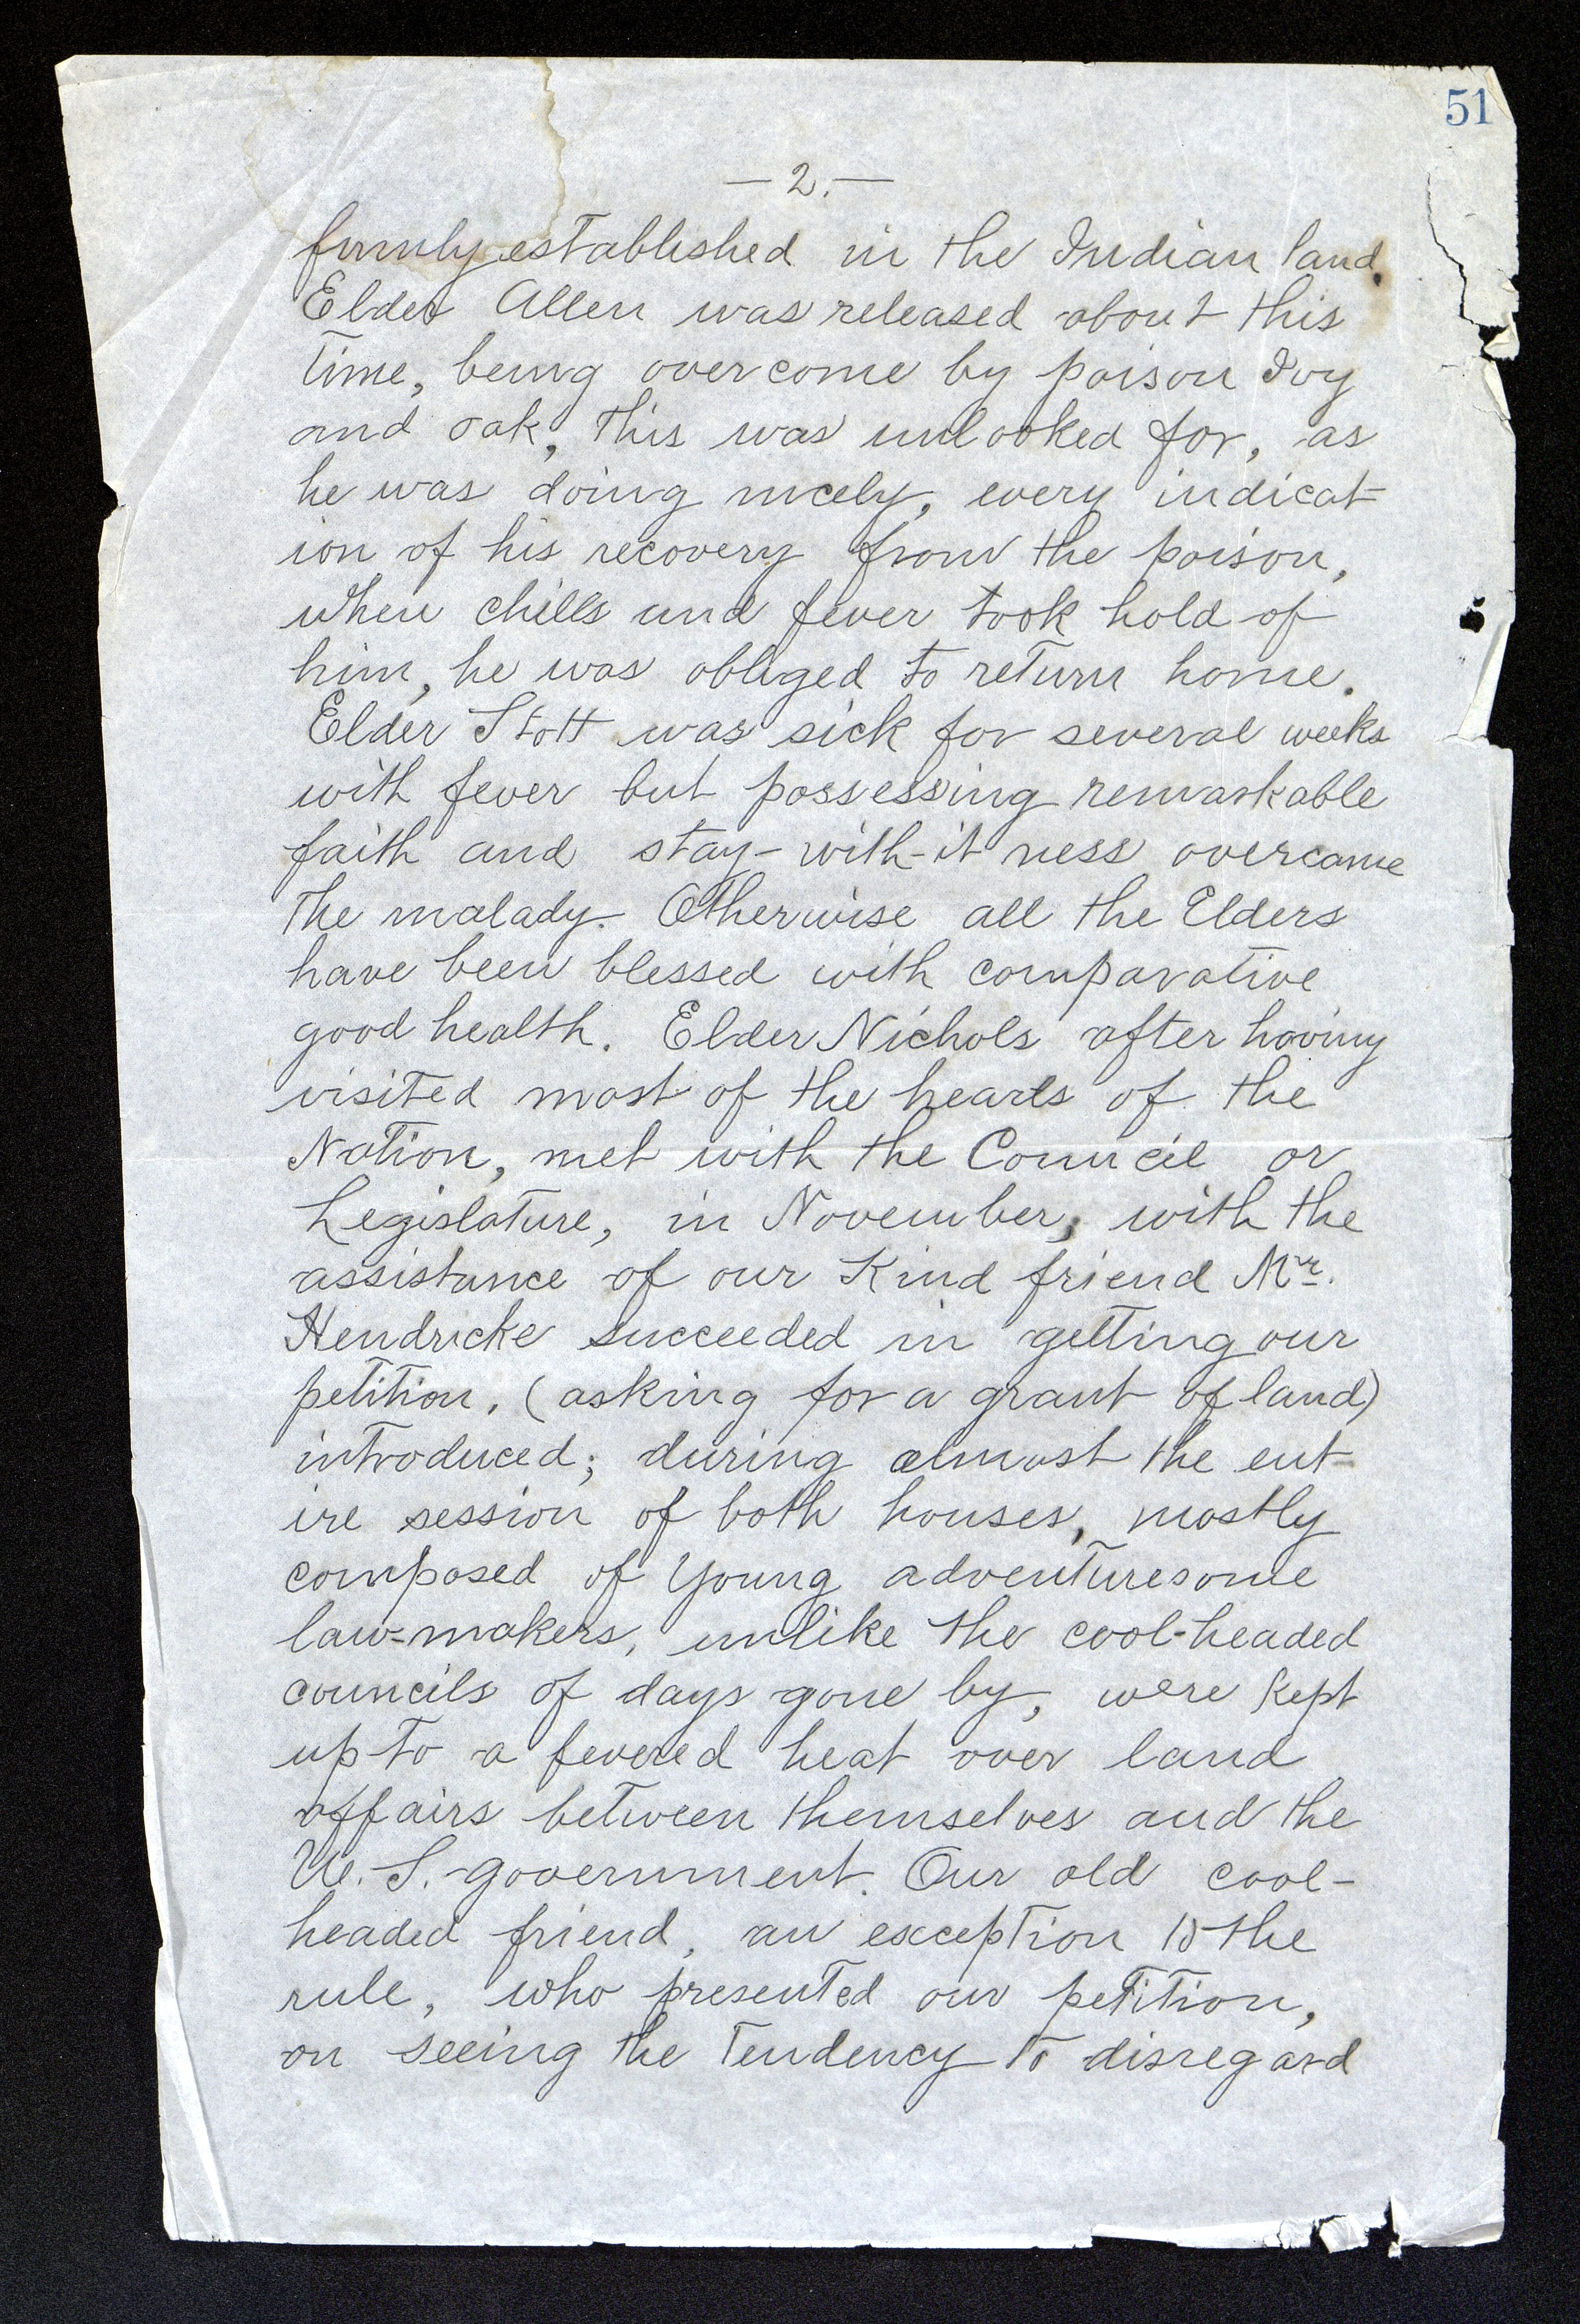 51
— 2. —
firmly established in the Indian land.
Elder Allen was released about this
time, being overcome by poison Ivy
and oak, this was unlooked for, as
he was doing nicely, every indicat-
ion of his recovery from the poison,
when chills and fever took hold of
him, he was obliged to return home.
Elder Stott was sick for several weeks
with fever but possessing remarkable
faith and stay-with-it ness overcame
the malady. Otherwise all the Elders
have been blessed with comparative
good health. Elder Nichols after having
visited most of the heads of the
Nation, met with the Council or
Legislature, in November, with the
assistance of our Kind friend Mr.
Hendricks succeeded in getting our
petition, (asking for a grant of land)
introduced; during almost the ent-
ire session of both houses, mostly
composed of Young adventuresome
law-makers, unlike the cool-headed
councils of days gone by, were kept
up to a fevered heat over land
affairs between themselves and the
U. S. government. Our old cool-
headed friend, an exception to the
rule, who presented our petition,
on seeing the tendency to disregard